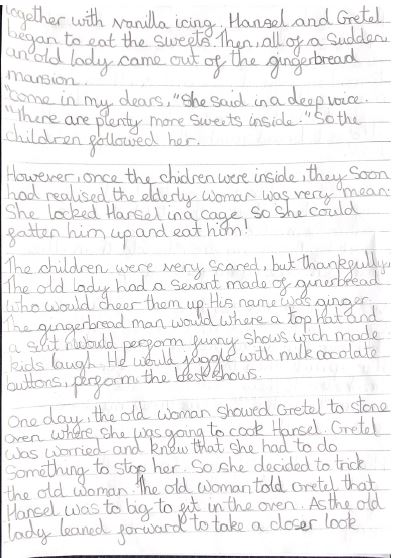 together with vanilla icing. Hansel and Gretel
began to eat the sweets. Then, all of a sudden
an old lady came out of the gingerbread
mansion.
"Come in my dears," she said in a deep voice.
"There are plenty more sweets inside." So the
children followed her.
However, once the chidren were inside, they soon
had realised the elderly woman was very mean.
She locked Hansel in a cage so she could
fatten him up and eat him!
The children were very scared, but thankfully
The old lady had a sevant made of ginerbread
who would cheer them up. His name was ginger.
The gingerbread man would where a top hat and
a suit would perform funny shows wich made
kids laugh. He would juggle with milk cocolate
buttons, perform the best shows.
One day, the old woman showed Gretel to stone
oven where she was going to cook Hansel. Gretel
was worried and knew that she had to do
something to stop her. So she decided to trick
the old woman. The old woman told Gretel that
Hansel was to big to fit in the oven. As the old
lady leaned forward to take a closer look